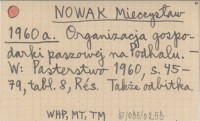 NOWAK Mieczysław
1960 a. Organizacja gospo-
darki paszowej na Podhalu.
W: Pasterstwo 1960, s. 45-
79, tabl. 8, Rés. Także odbitka.
WHP, MT, TM